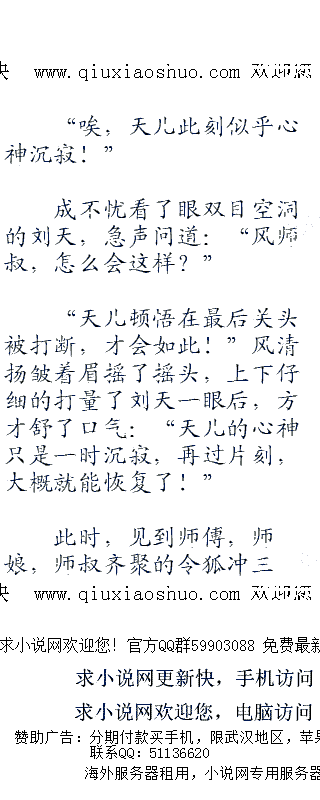 快 www.qiuxiaoshuo.com 欢迎您
“唉，天儿此刻似乎心
神沉寂！”
成不忧看了眼双目空洞
的刘天，急声问道：“风师
叔，怎么会这样？”
“天儿顿悟在最后关头
被打断，才会如此！”风清
扬皱着眉摇了摇头，上下仔
细的打量了刘天一眼后，方
才舒了口气：“天儿的心神
只是一时沉寂，再过片刻，
大概就能恢复了！”
此时，见到师傅，师
娘，师叔齐聚的令狐冲三
快 www.qiuxiaoshuo.com 欢迎您
求小说网欢迎您！官方QQ群59903088 免费最新
求小说网更新快，手机访问
求小说网欢迎您，电脑访问
赞助广告：分期付款买手机，限武汉地区，苹果
联系QQ：51136620
海外服务器租用，小说网专用服务器